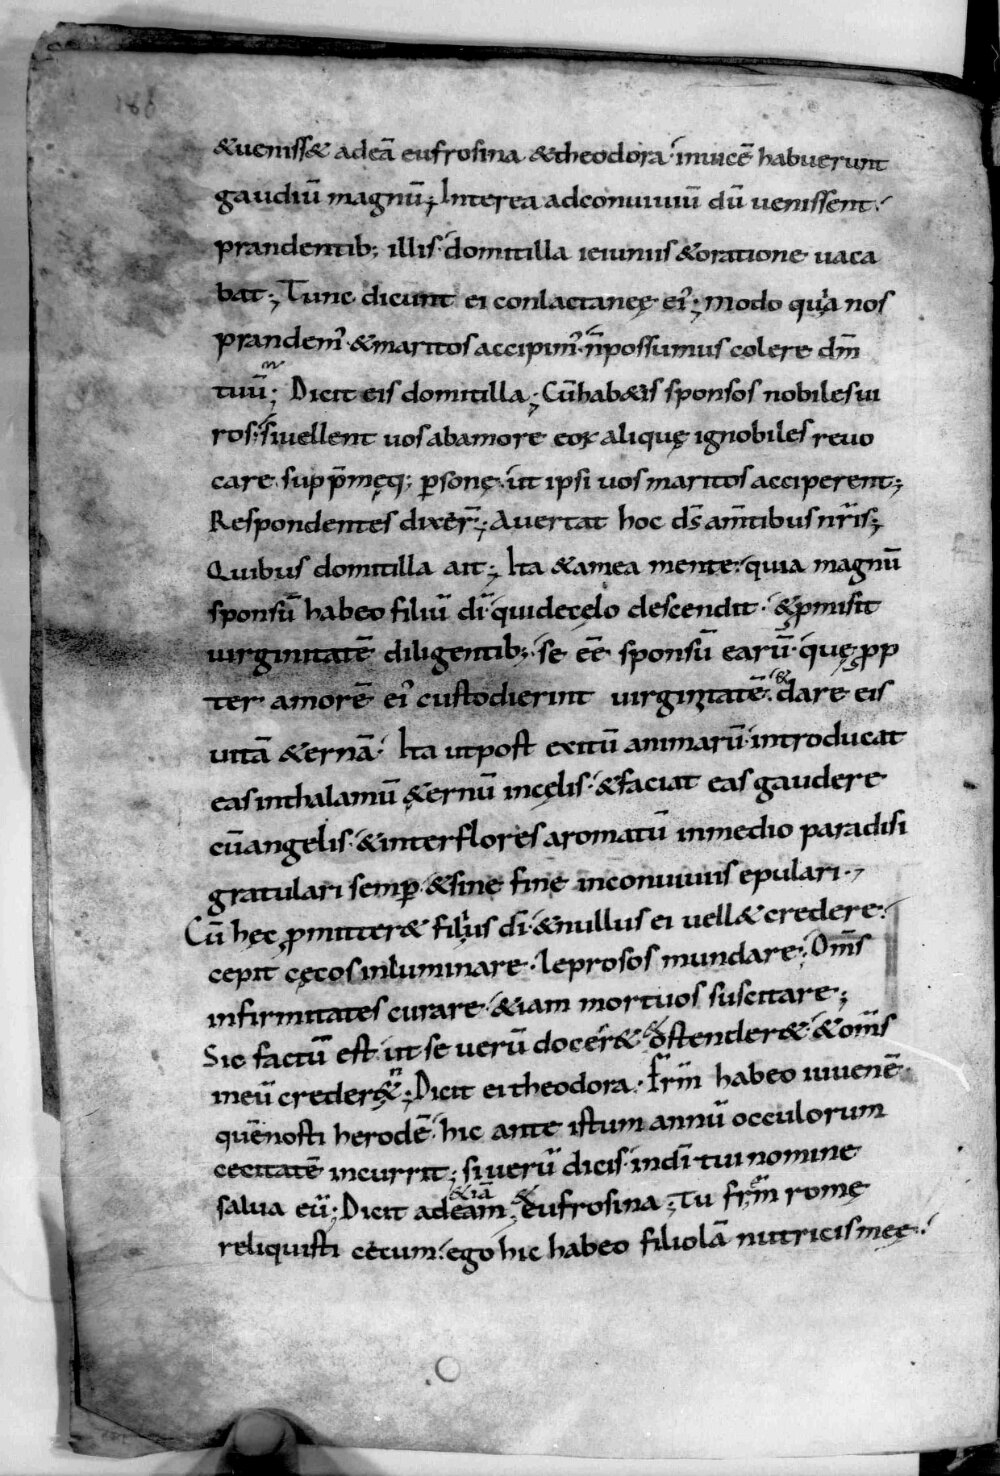 &ueniss& adeā eufrosina &theodora· inuicē habuerunt
gaudiū magnū; Interea adconuiuiū dū uenissent·
prandentib; illis· domitilla ieiuniis &oratione uaca
bat; Tunc dicunt ei conlactaneę ei᾿; modo quia nos
prandem᾿ &maritos accipim᾿· n̄possumus colere dm̄
tuū; Dicit eis domitilla; Cūhab&is sponsos nobiles ui
ros· siuellent uos abamore eoꝝ aliquę ignobiles reuo
care supp̄męq; ꝑsonę· ut ipsi uos maritos acciperent;
Respondentes dixer̄; Auertat hoc ds̄ am̄tibus nr̄is;
Quibus domitilla ait; Ita &amea mente· quia magnū
sponsū habeo filiū dī· quidecęlo descendit· &ꝓmisit
uirginitatē diligentib; se eē sponsū earū· quę ꝓp
ter amorē ei᾿ custodierint uirginitatē· & dare eis
uitā &ernā· Ita utpost exitū animarū· introducat
eas inthalamū &ernū incęlis· &faciat eas gaudere
cū angelis· &inter flores aromatū inmedio paradisi
gratulari semꝑ &sine fine inconuiuiis epulari·,
Cū hęc ꝓmitter& filius dī· &nullus ei uell& credere·
cepit cęcos inluminare· leprosos mundare; Om̄s
infirmitates curare· &iam mortuos suscitare;
Sic factū est ut se uerū docer& & ostender&· &om̄s
ineū crederen̄t; Dicit ei theodora· Frm̄ habeo iuuenē·
quēnosti herodē· hic ante istum annū occulorum
cecitatē incurrit; si uerū dicis· indī tui nomine
salua eū; Dicit adeam &iā & eufrosina; Tu frm̄ romę
reliquisti cecum· ego hic habeo filiolā nutricis meę·